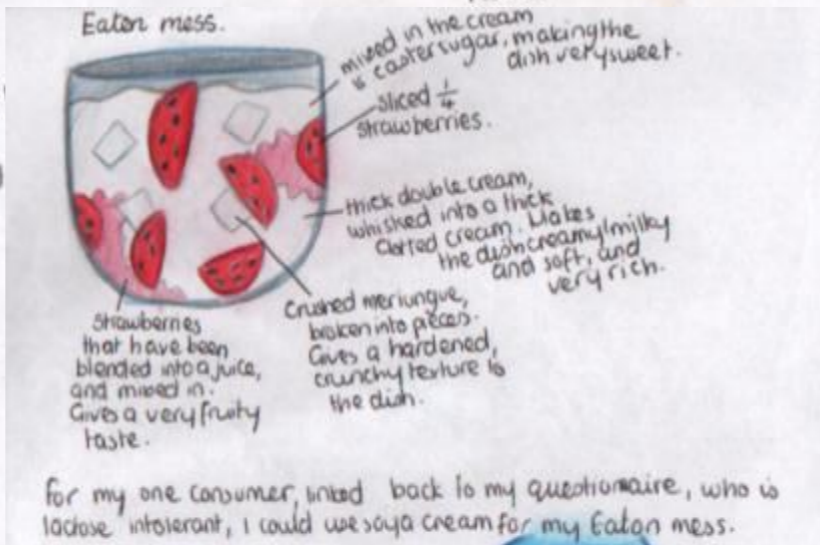 Eaton mess.
mixed in the cream
is caster sugar, making the
dish very sweet.
sliced 1/4
strawberries.
thick double cream,
whisked into a thick
clotted cream. Makes
the dish creamy/milky
and soft, and
very rich.
Crushed meriungue,
broken into pieces.
Gives a hardened,
crunchy texture to
the dish.
Strawberries
that have been
blended into a juice,
and mixed in.
Gives a very fruity
taste.
For my one consumer, linked back to my questionnaire, who is
lactose intolerant, I could use soya cream for my Eaton mess.